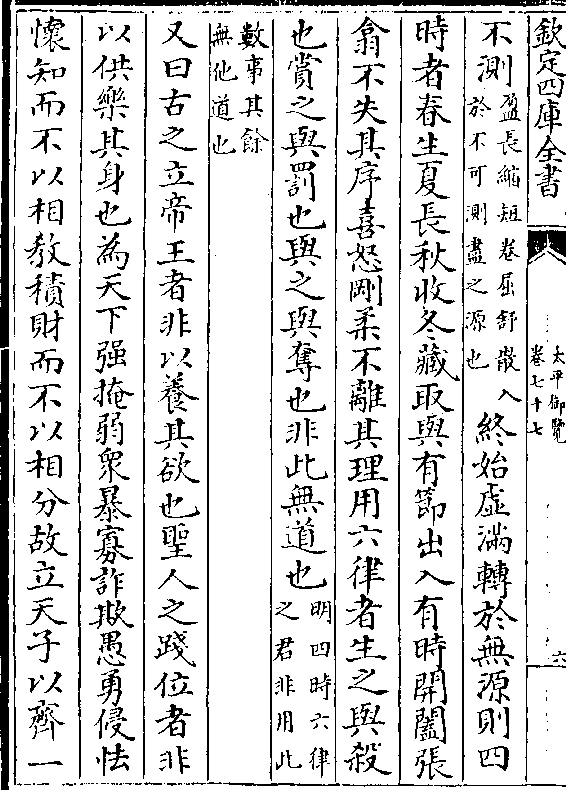 欽定四庫全書
太平御覽
卷七十七
六
不測盈長縮短卷屈舒散入於不可測盡之源也終始虛滿轉於無源則四
時者春生夏長秋收冬藏取與有節出入有時開闔張
翕不失其序喜怒剛柔不離其理用六律者生之與殺
也賞之與罰也與之與奪也非此無道也明四時六律之君非用此
數事其餘無他道也
又曰古之立帝王者非以養其欲也聖人之踐位者非
以供樂其身也為天下强掩弱衆暴寡詐欺愚勇侵怯
懷知而不以相教積財而不以相分故立天子以齊一